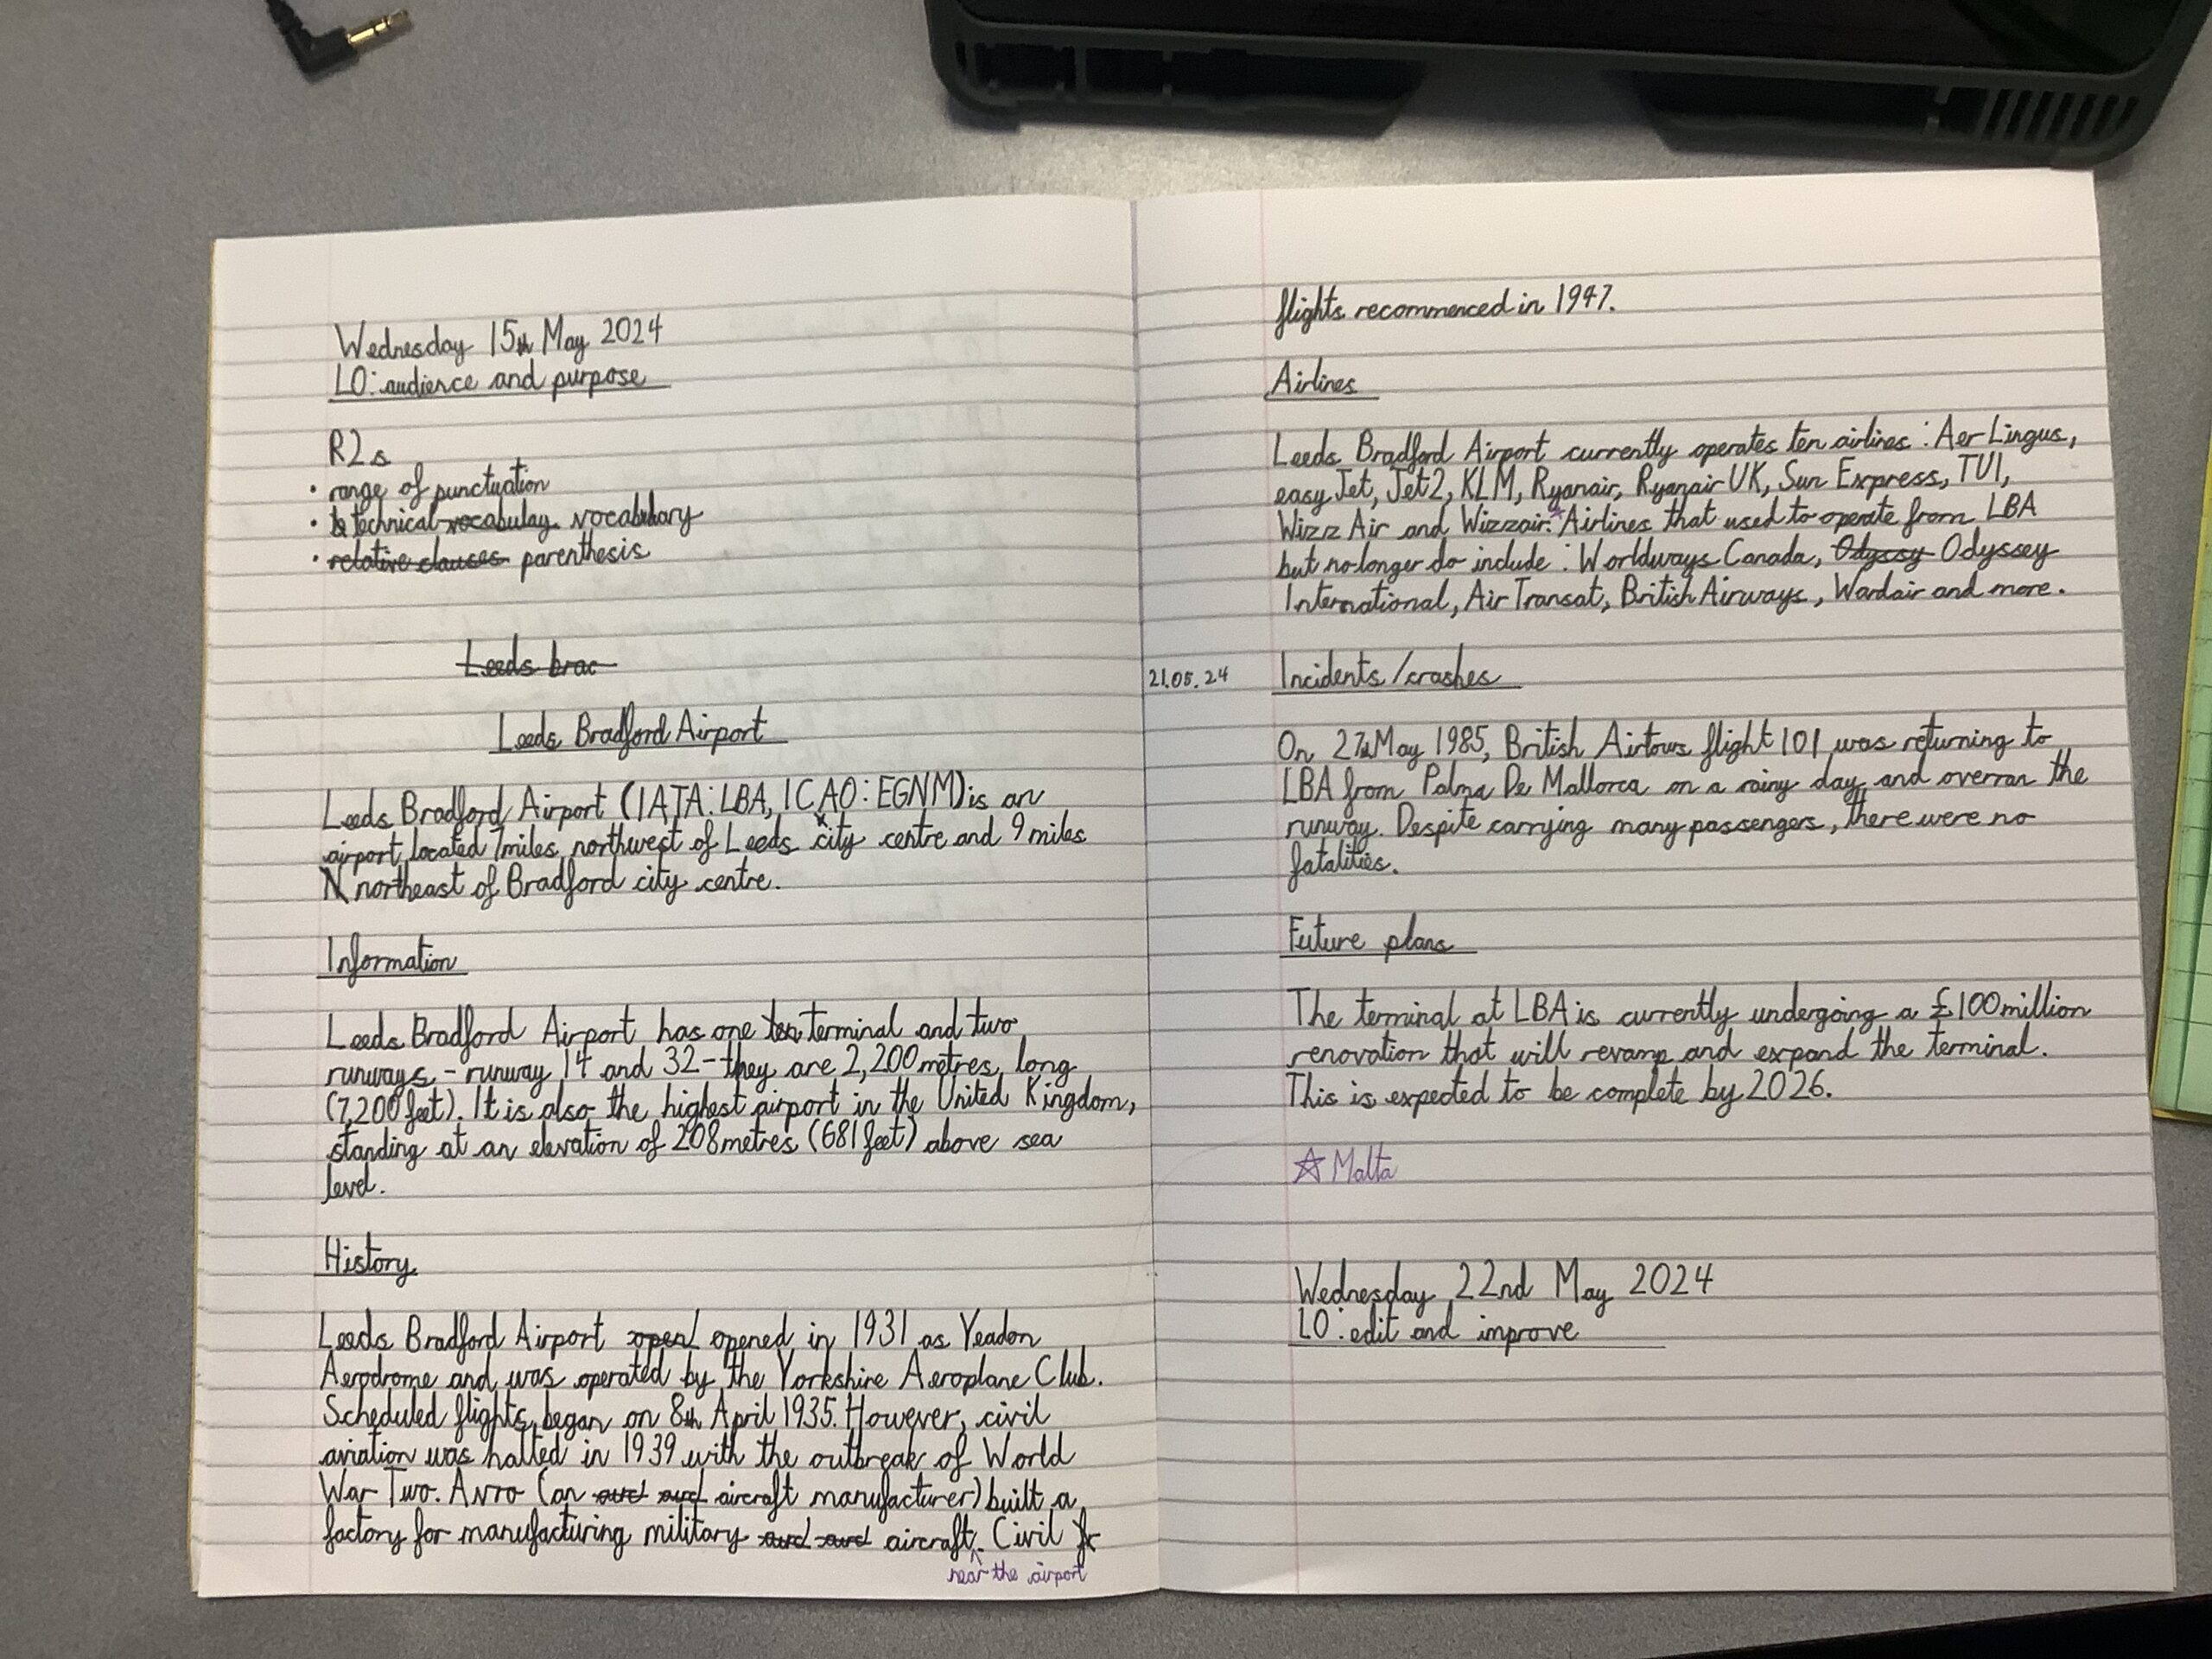 Wednesday 15th May 2024
LO: audience and purpose
R2s
• range of punctuation
• te technical vocabulay vocabulary
• relative clauses parenthesis
Leeds brac
Leeds Bradford Airport
Leeds Bradford Airport (IATA: LBA, ICAO: EGNM) is an
airport located 7miles northwest of Leeds city centre and 9 miles
N northeast of Bradford city centre.
Information
Leeds Bradford Airport has one ten terminal and two
runways - runway 14 and 32 - they are 2,200 metres long
(7,200 feet). It is also the highest airport in the United Kingdom,
standing at an elevation of 208 metres (681 feet) above sea
level.
History
Leeds Bradford Airport open opened in 1931 as Yeadon
Aerodrome and was operated by the Yorkshire Aeroplane Club.
Scheduled flights began on 8th April 1935. However, civil
aviation was halted in 1939 with the outbreak of World
War Two. Avro (an aircraft manufacturer) built a
factory for manufacturing military aircraft. Civil
near the airport
flights recommenced in 1947.
Airlines
Leeds Bradford Airport currently operates ten airlines: Aer Lingus,
easyJet, Jet2, KLM, Ryanair, Ryanair UK, Sun Express, TUI,
Wizz Air and Wizzair.* Airlines that used to operate from LBA
but no longer do include: Worldways Canada, Odyssy Odyssey
International, Air Transat, British Airways, Wardair and more.
21.05.24
Incidents/crashes
On 27th May 1985, British Airtours flight 101 was returning to
LBA from Palma De Mallorca on a rainy day and overran the
runway. Despite carrying many passengers, there were no
fatalities.
Future plans
The terminal at LBA is currently undergoing a £100 million
renovation that will revamp and expand the terminal.
This is expected to be complete by 2026.
☆ Malta
Wednesday 22nd May 2024
LO: edit and improve